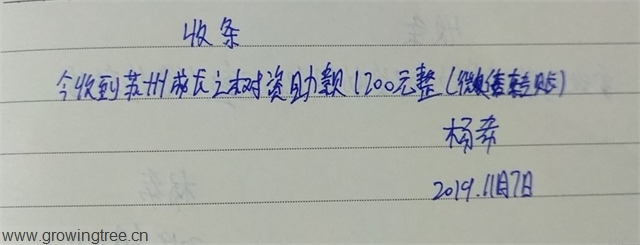 收条
今收到苏州成长之树对资助款1200元整(微信转账)
杨希
2019.11月7日
www.growingtree.cn